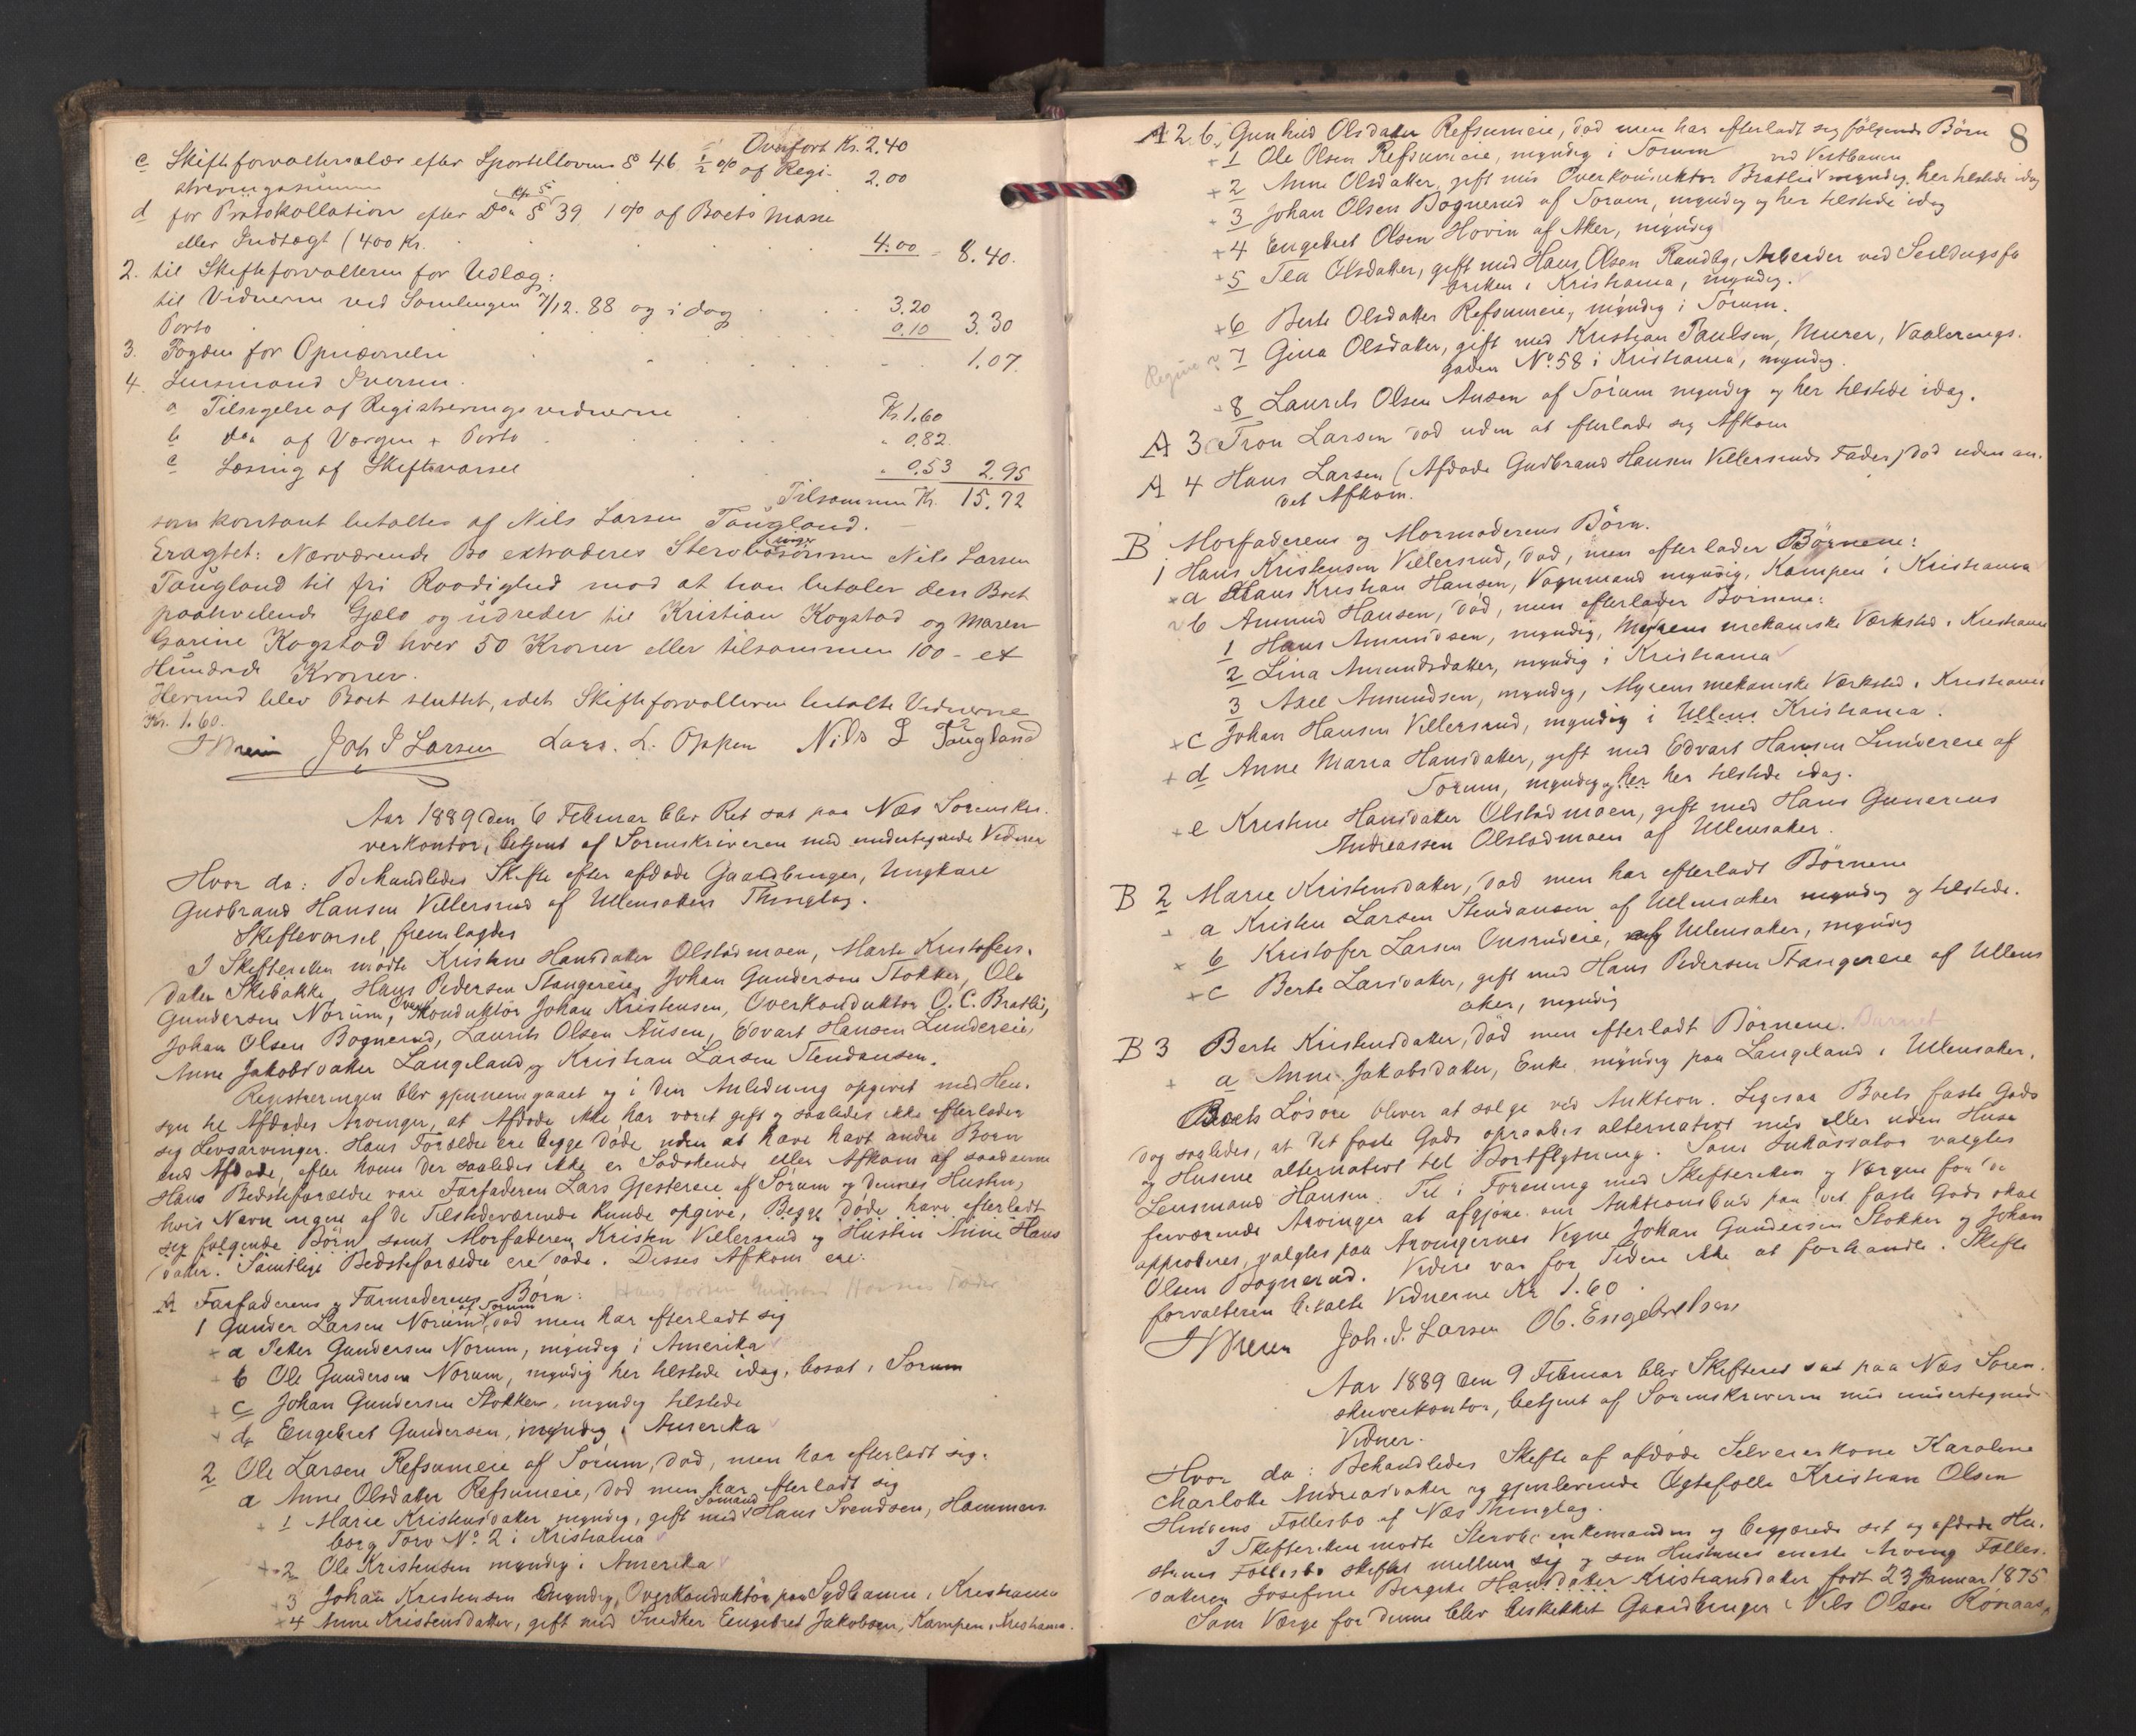 Overført Kr. 2.40
c Skifteforvaltersalær efter Sportelloven § 46 ½ % af Regi-
streringssummen 2.00
d for Protokollation efter Do § 39 1 % af Boets Masse
eller Indtægt (400 Kr. 4.00 = 8.40.
2. til Skifteforvalteren for Udlæg:
til Vidnerne ved Samlingen 7/12. 88 og i dag 3.20
Porto 0.10 3.30
3. Fogden for Opnævnelse 1.07.
4. Lensmand Iversen.
a Tilsigelse af Registreringsvidnerne Kr. 1.60
b do af Værgen + Porto " 0.82.
c Læsning af Skiftevarsel " 0.53 2.95
Tilsammen Kr. 15.72
som kontant betaltes af Nils Larsen Taugland.
Eragtet: Nærværende Bo extraderes Nils Larsen
Taugland til fri Raadighed mod at han betaler den Boet
paahvilende Gjæld og udreder til Kristian Kogstad og Maren
Garine Kogstad hver 50 Kroner eller tilsammen 100 - et
Hundrede Kroner.
Hermed blev Boet sluttet, idet Skifteforvalteren betalte Vidnerne
Kr. 1.60.
Joh J Larsen Lars. L. Oppen Nils L Taugland
Aar 1889 den 6 Februar blev Ret sat paa Næs Sorenskri-
verkontor, betjent af Sorenskriveren med undertegnede Vidner
Hvor da: Behandledes Skifte efter afdøde Gaardbruger, Ungkarl
Gudbrand Hansen Villersrud af Ullensakers Thinglag.
Skiftevarsel fremlagdes
I Skifteretten mødte Kristine Hansdatter Olstadmoen, Marte Kristofers-
datter Skibakke, Hans Pedersen Stangereie, Johan Gundersen Stokker, Ole
Gundersen Norum, Overkonduktør Johan Kristensen, Overkonduktør O. C. Bratlie,
Johan Olsen Bognerud, Laurits Olsen Ausen, Edvart Hansen Lundereie,
Anne Jakobsdatter Langeland og Kristian Larsen Stendansen.
Registreringen blev gjennemgaaet og i den Anledning opgivet med Hen-
syn til Afdødes Arvinger, at Afdøde ikke har været gift og saaledes ikke efterlader
sig Livsarvinger. Hans Forældre ere begge døde, uden at have havt andre Børn
end Afdøde, efter hvem der saaledes ikke er Sødskende eller Afkom af saadanne
Hans Bedsteforældre vare Farfaderen Lars Gjestereie af Sørum og dennes Hustru,
hvis Navn ingen af de Tilstedeværende kunde opgive, Begge døde, have efterladt
sig følgende Børn samt Morfaderen Kristen Villersrud og Hustru Anne Hans
datter. Samtlige Bedsteforældre ere døde. Disses Afkom ere:
A Farfaderens og Farmoderens Børn: Hans Larsen Gudbrand Hansens Fader
1 Gunder Larsen Norum af Sørum, død men har efterladt sig
a Peter Gundersen Norum, myndig i Amerika
b Ole Gundersen Norum, myndig her tilstede idag, bosat i Sørum
c Johan Gundersen Stokker, myndig tilstede
d Engebret Gundersen, myndig i Amerika
2 Ole Larsen Refsumeie af Sørum, død, men har efterladt sig.
a Anne Olsdatter Refsumeie, død men har efterladt sig
1 Marie Kristensdatter myndig, gift med Sømand Hans Svendsen, Hammers-
borg Torv No. 2 i Kristiania
2 Ole Kristensen myndig i Amerika
3 Johan Kristensen myndig, Overkonduktør paa Sydbanen i Kristiania
4 Anne Kristensdatter, gift med Snedker Engebret Jakobsen, Kampen, Kristiania.
8
A 2. b. Gunhild Olsdatter Refsumeie, død men har efterladt sig følgende Børn
1 Ole Olsen Refsumeie, myndig i Sørum
2 Anne Olsdatter, gift med Overkonduktør Bratlie ved Vestbanen myndig, her tilstede idag
3 Johan Olsen Bognerud af Sørum, myndig og her tilstede idag
4 Engebret Olsen Hovin af Aker, myndig
5 Tea Olsdatter, gift med Hans Olsen Randby, Arbeider ved Seildugsfa
briken i Kristiania, myndig.
6 Berte Olsdatter Refsumeie, myndig i Sørum.
Regine? 7 Gina Olsdatter, gift med Kristian Paulsen, Murer, Vaalerengs-
gaden No. 58 i Kristiania, myndig.
8 Laurits Olsen Ausen af Sørum myndig og her tilstede idag.
A 3 Tron Larsen død uden at efterlade sig Afkom
A 4 Hans Larsen (Afdøde Gudbrand Hansen Villersruds Fader) død uden an-
det Afkom.
B Morfaderens og Mormoderens Børn.
1 Hans Kristensen Villersrud, død, men efterlader Børnene:
a Hans Kristian Hansen, Vognmand myndig, Kampen i Kristiania
b Amund Hansen, død, men efterlader Børnene:
1 Hans Amundsen, myndig, Myrens mekaniske Værksted i Kristiania
2 Lina Amundsdatter, myndig i Kristiania
3 Axel Amundsen, myndig, Myrens mekaniske Værksted i Kristiania
c Johan Hansen Villersrud, myndig i Ullens Kristiania.
d Anne Maria Hansdatter, gift med Edvart Hansen Lundereie af
Sørum, myndig og her her tilstede idag.
e Kristine Hansdatter Olstadmoen, gift med Hans Gunerius
Andreassen Olstadmoen af Ullensaker.
B 2 Marie Kristensdatter, død men har efterladt Børnene
a Kristen Larsen Stendansen af Ullensaker myndig og tilstede.
b Kristofer Larsen Onsrudeie, af Ullensaker, myndig
c Berte Larsdatter, gift med Hans Pedersen Stangereie af Ullens
aker, myndig
B 3 Berte Kristensdatter, død men efterladt Børnene. Barnet
a Anne Jakobsdatter, Enke, myndig paa Langeland i Ullensaker.
Boets Løsøre bliver at sælge ved Auktion. Ligesaa Boets faste Gods
dog saaledes, at det faste Gods opraabes alternativt med eller uden Huse
og Husene alternativt til Bortflytning. Som Inkassator valgtes
Lensmand Hansen. Til i Forening med Skifteretten og Værgen for de
fraværende Arvinger at afgjøre om Auktionsbud paa det faste Gods skal
approberes, valgtes paa Arvingernes Vegne Johan Gundersen Stokker og Johan
Olsen Bognerud. Videre var for Tiden ikke at forhandle. Skifte
forvalteren betalte Vidnerne Kr 1.60
Joh. J. Larsen O6. Engebretsen
Aar 1889 den 9 Februar blev Skifteret sat paa Næs Soren-
skriverkontor, betjent af Sorenskriveren med undertegnede
Vidner.
Hvor da: Behandledes Skifte af afdøde Selveierkone Karoline
Charlotte Andreasdatter og gjenlevende Ægtefælle Kristian Olsen
Fællesbo af Næs Thinglag.
I Skifteretten mødte Sterboenkemanden og begjærede sit og afdøde Hu-
strues Fællesbo skiftet mellem sig og sin Hustrues eneste Arving Fælles-
datteren Josefine Birgitte Hansdatter Kristiansdatter født 23 Januar 1875
Som Værge for denne blev beskikket Gaardbruger Nils Olsen Rønaas,